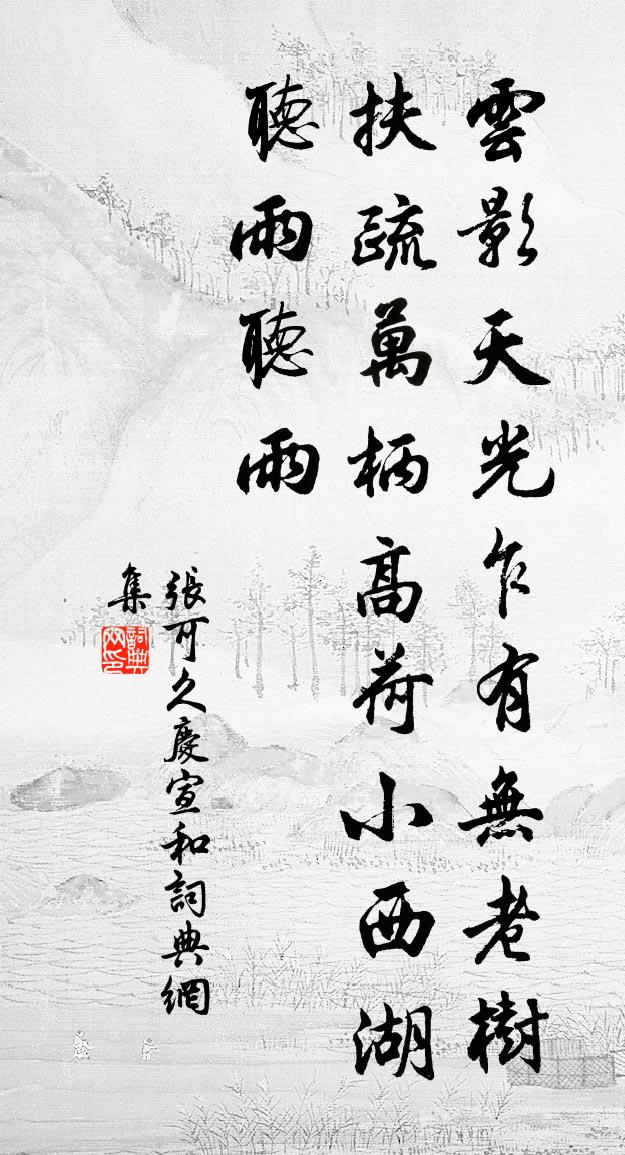 雲影天光乍有無老樹
扶疏萬柄高荷小西湖
聽雨聽雨
張可久慶宣和詞典網
集
詞典网印